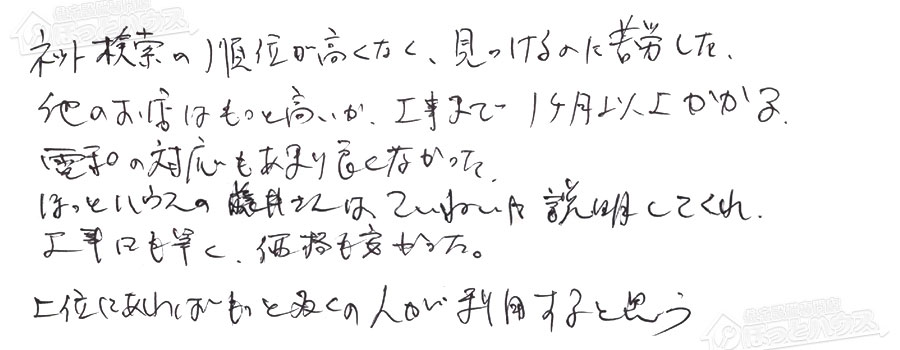 ネット検索の順位が高くなく、見つけるのに苦労した、
他のお店はもっと高いか、工事まで1ヶ月以上かかる、
電話の対応もあまり良くなかった、
ほっとハウスの藤井さんは、ていねいな説明してくれ、
工事日も早く、価格も安かった。
上位にあればもっと多くの人が利用すると思う
ほっとハウス
ほっとハウス